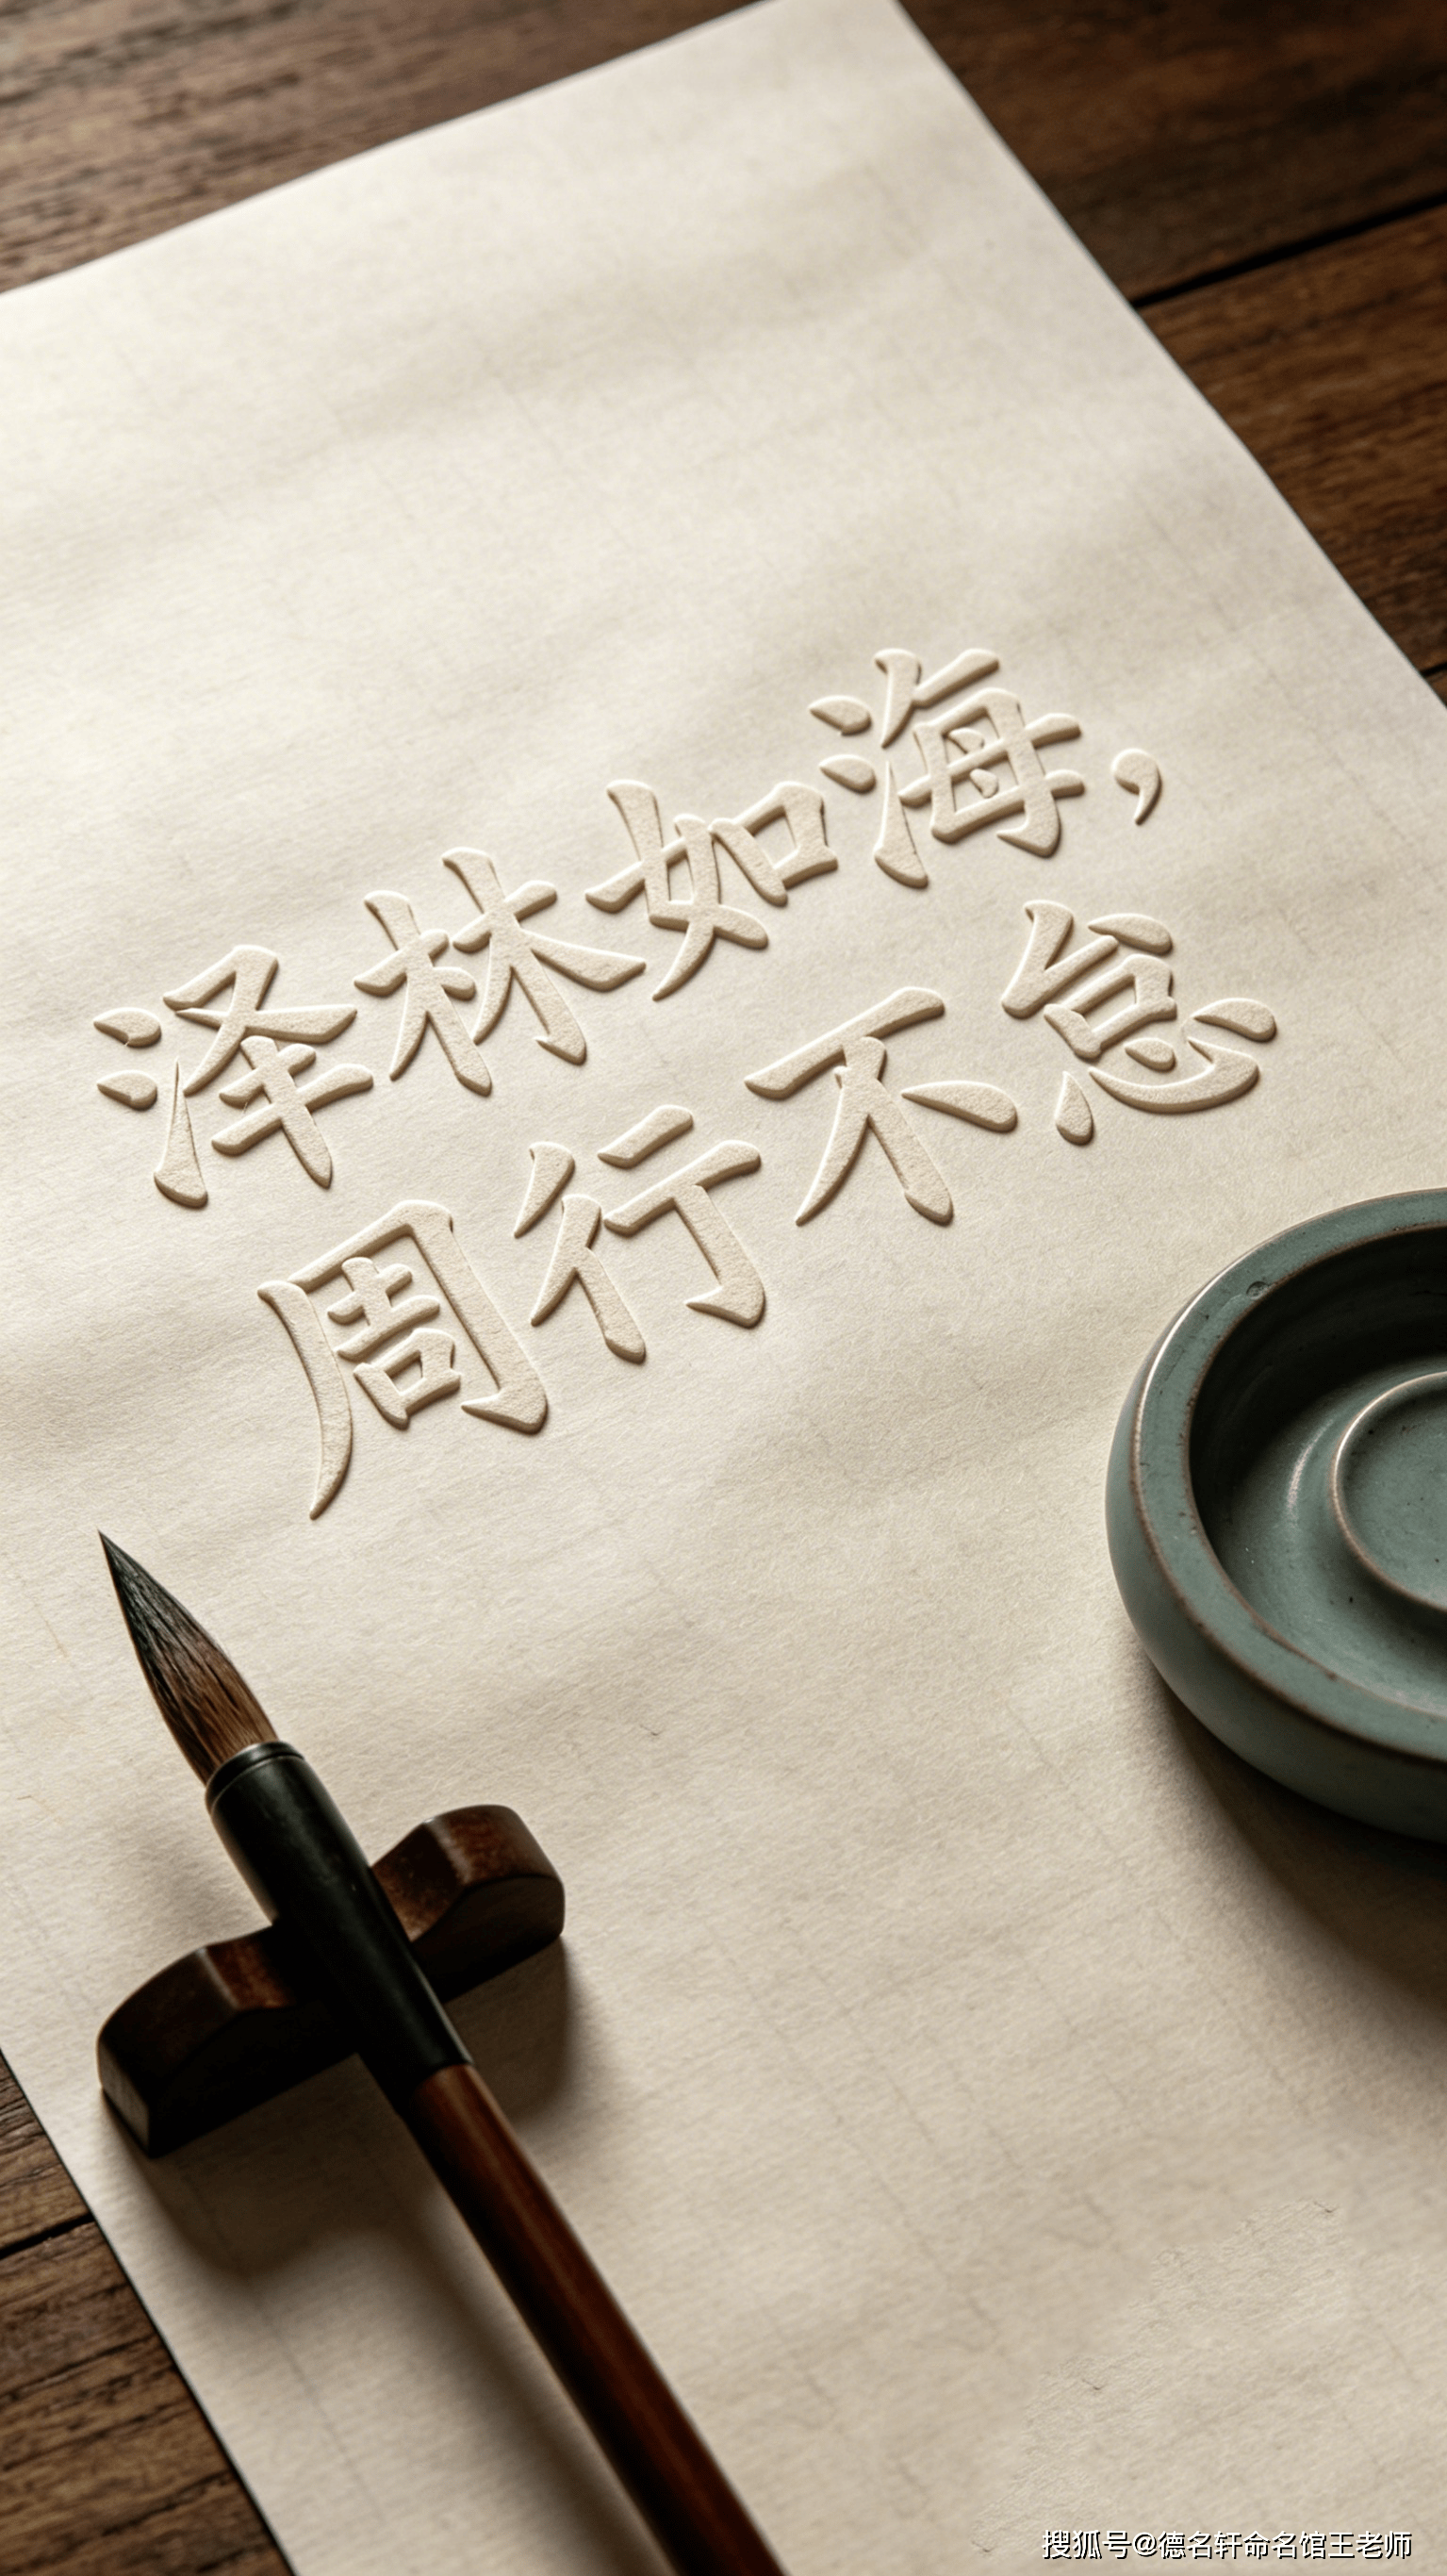 泽林如海,
周行不怠
搜狐号@德名轩命名馆王老师